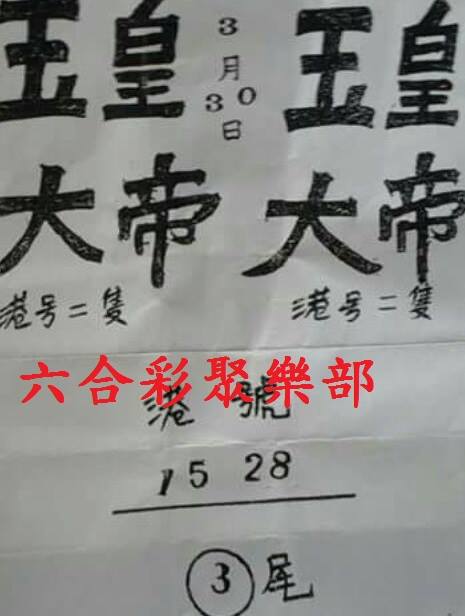 玉皇 3月30日 玉皇
大帝 大帝
港号二隻 港号二隻
六合彩聚樂部
港號
15 28
③尾